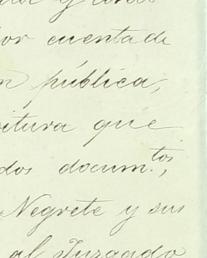 y otros
por cuenta de
pública,
itura que
dos docum.tos,
Negrete y sus
al Juzgado